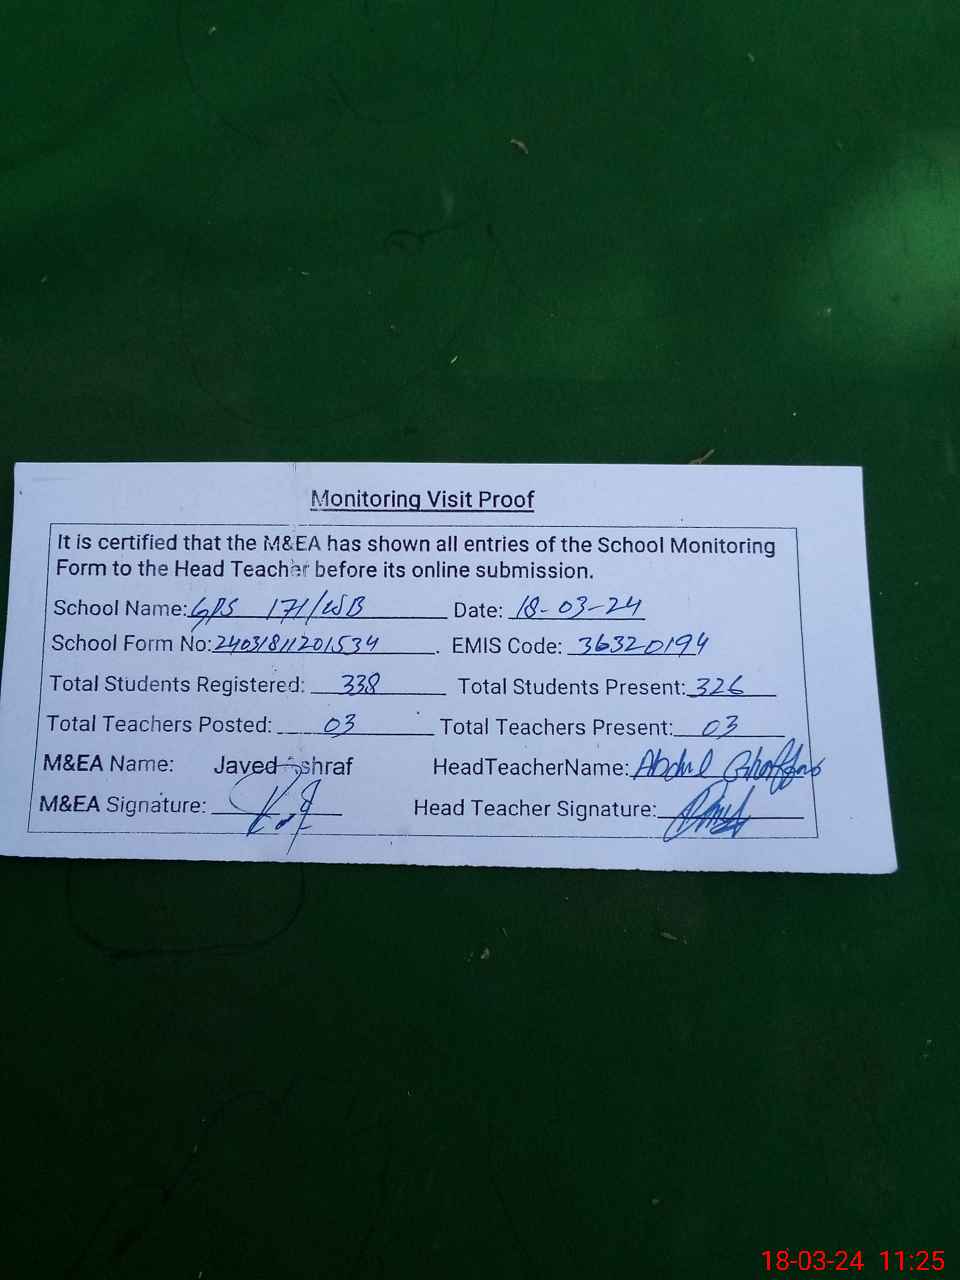 Monitoring Visit Proof
It is certified that the M&EA has shown all entries of the School Monitoring
Form to the Head Teacher before its online submission.
School Name: GPS 171/WB Date: 18-03-24
School Form No: 24031811201534. EMIS Code: 36320194
Total Students Registered: 338 Total Students Present: 326
Total Teachers Posted: 03 Total Teachers Present: 03
M&EA Name: Javed Ashraf HeadTeacherName: Abdul Ghaffar
M&EA Signature: Head Teacher Signature:
18-03-24 11:25